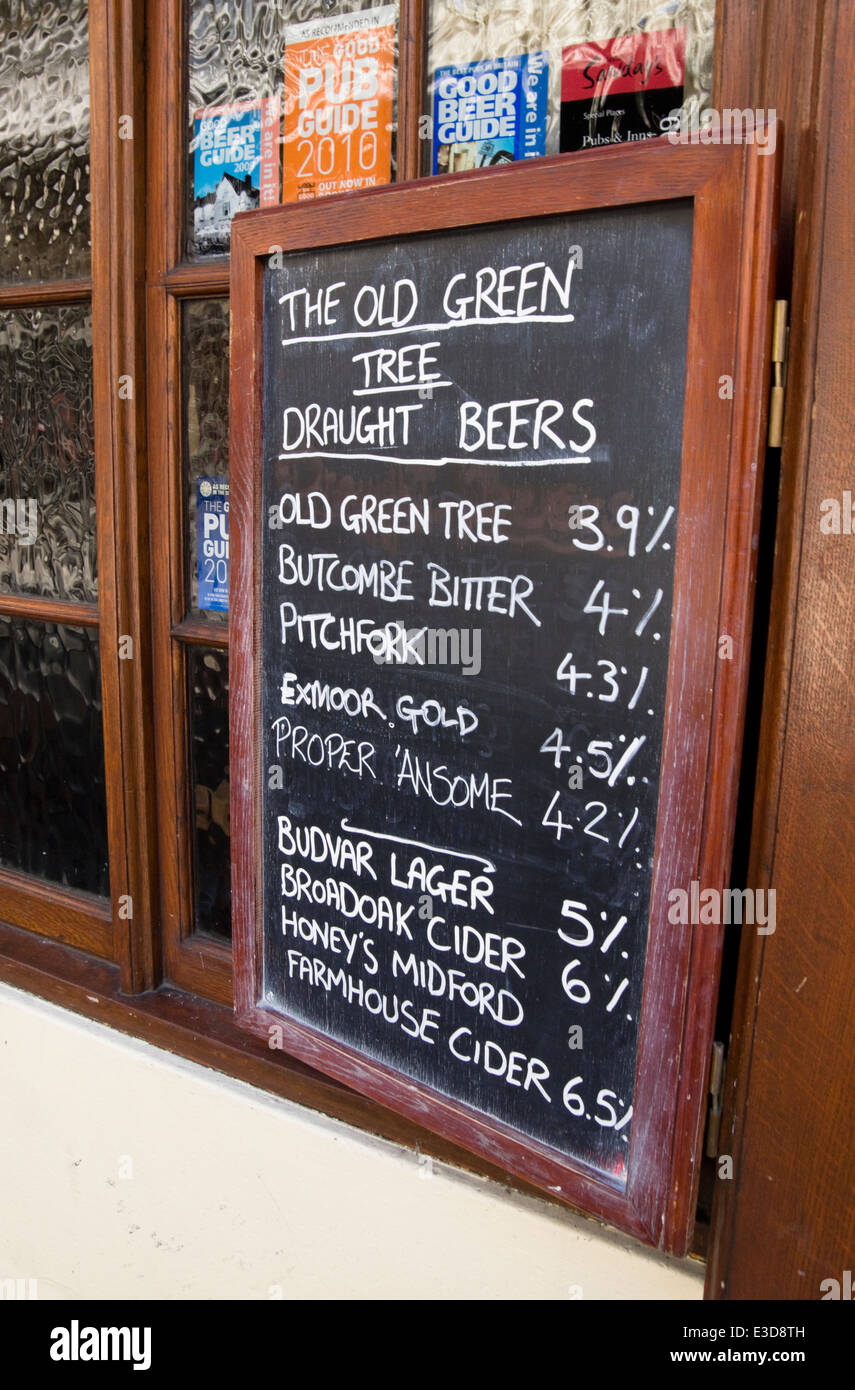 AS RECOMMENDED IN
THE GOOD
PUB
GUIDE
2010
OUT NOW IN
GOOD
BEER
GUIDE
THE BEST PUBS IN BRITAIN
GOOD
BEER
GUIDE
We are in
Sawday's
Special Places
Pubs & Inns
THE G
PUB
GUI
20
THE OLD GREEN
TREE
DRAUGHT BEERS
OLD GREEN TREE 3.9%
BUTCOMBE BITTER 4%
PITCHFORK 4.3%
EXMOOR GOLD 4.5%
PROPER 'ANSOME 4.2%
BUDVAR LAGER 5%
BROADOAK CIDER 6%
HONEY'S MIDFORD
FARMHOUSE CIDER 6.5%
alamy
Image ID: E3D8TH
www.alamy.com